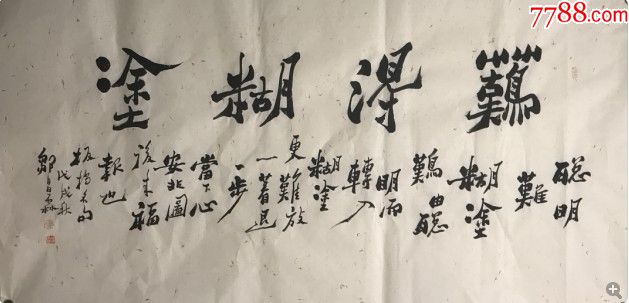 7788.com
難得糊塗
聪明
難
糊塗
難由聪
明而
轉入
糊塗
更難放
一著退
一步
當下心
安非圖
後来福
報也
板橋句
戊戌秋
鄒森